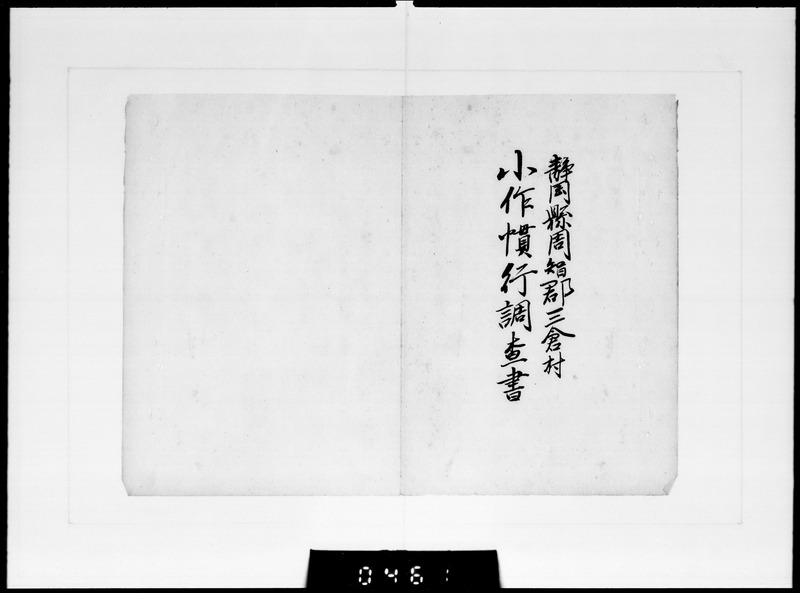 静岡縣周智郡三倉村
小作慣行調査書
0461